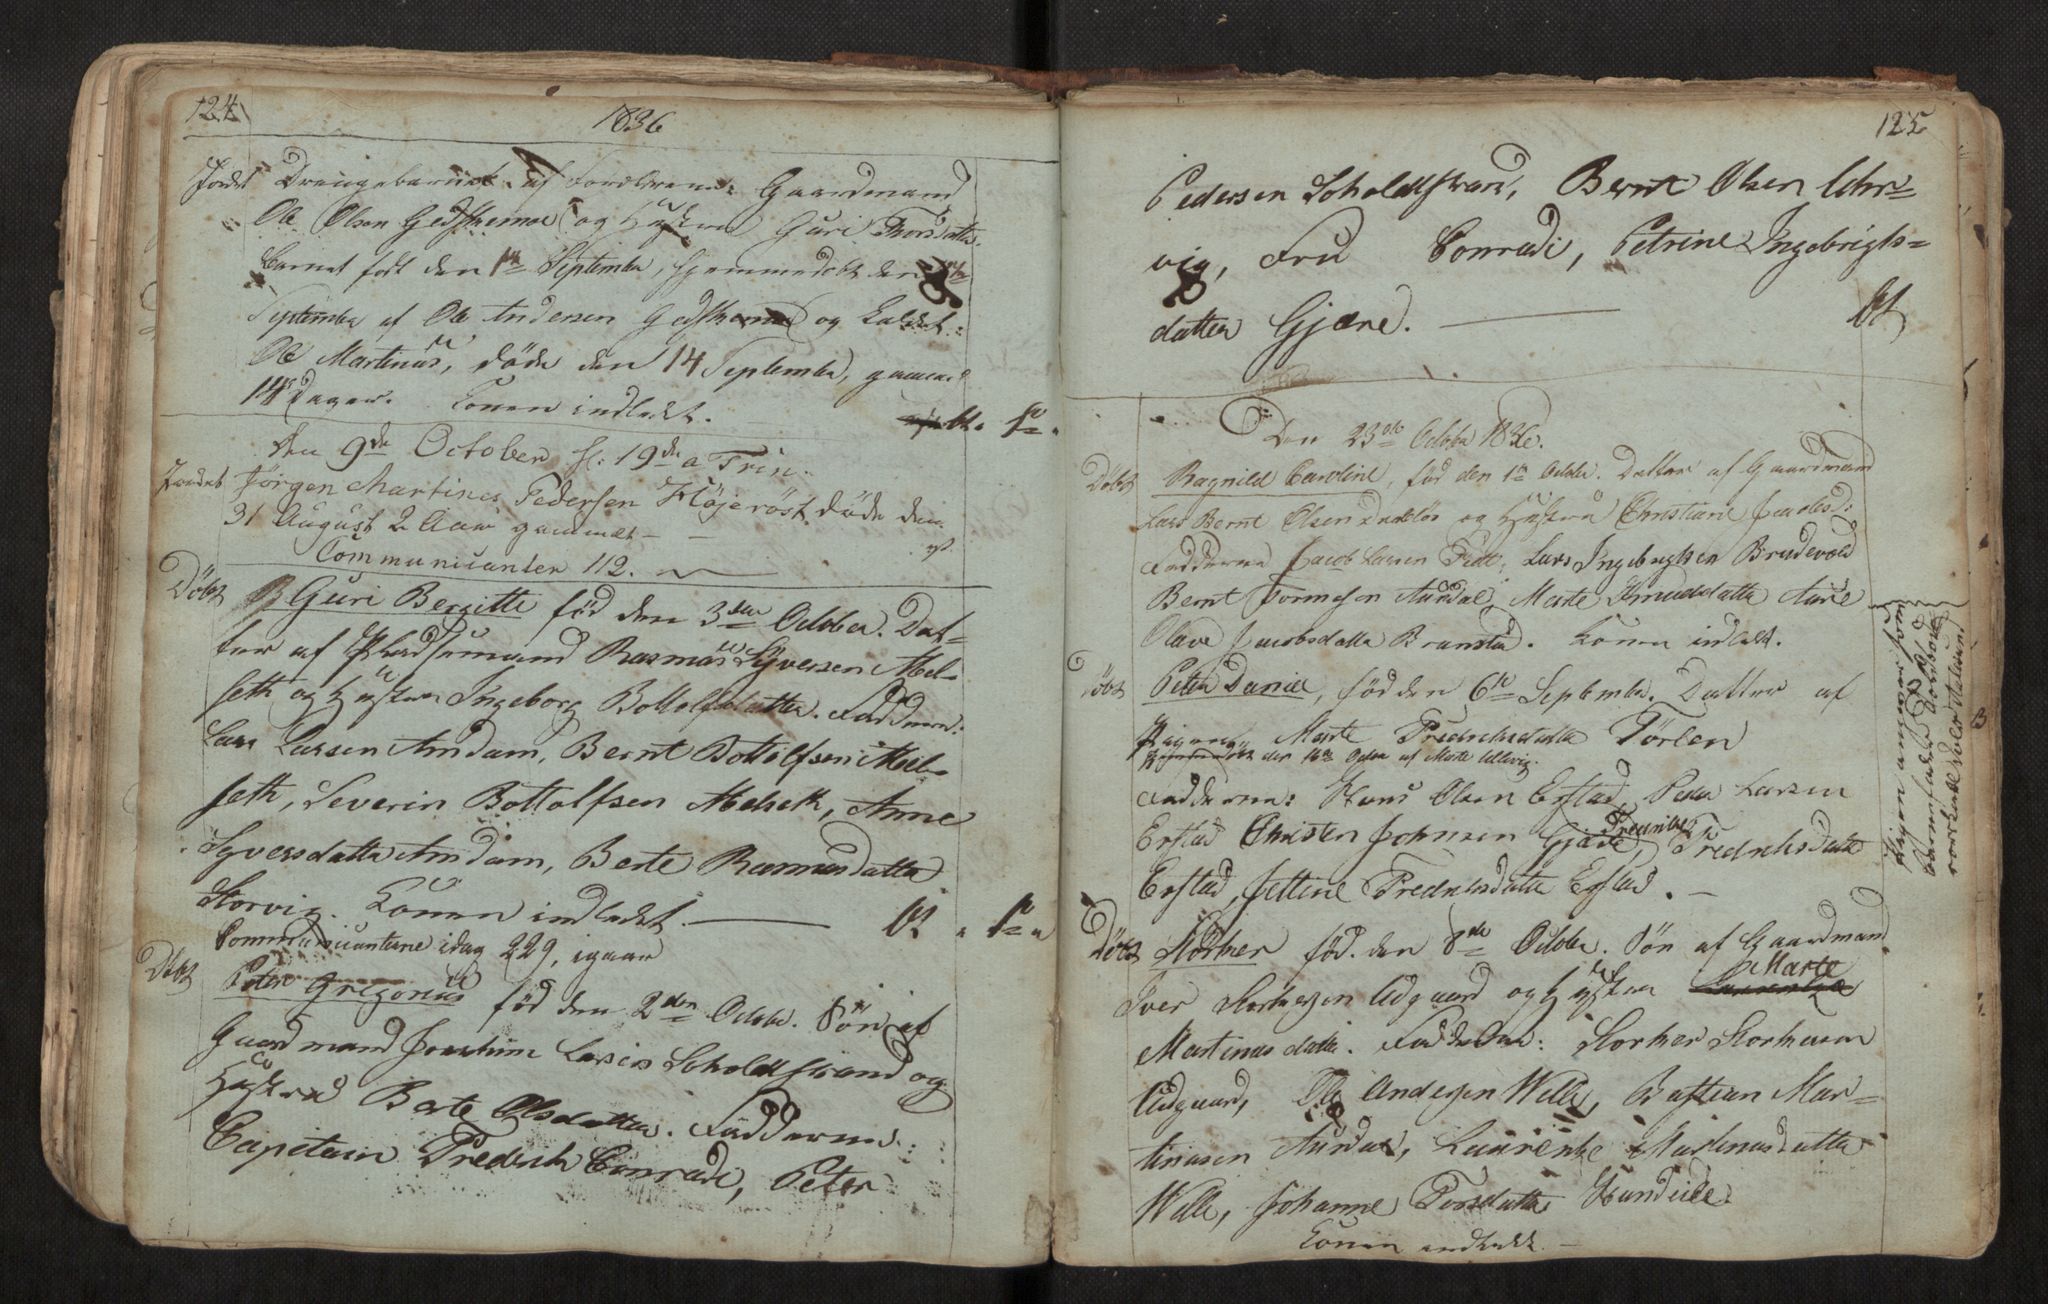 124
1836
Jordet Drengebarnet af Forældrene: Gaardmand
Ole Olsen Gedsthernæ og Hustru Guri Thorsdatter.
Barnet født den 1te September, hjemmedøbt den
September af Ole Andersen og kaldet:
Ole Martinus, døde den 14 September, gammel
14 Dager. Konen indledet.
Den 9de October s: 19de a Trin.
Jordet Jørgen Martines Pedersen Højeröst døde den
31 August 2 Aar gammel
Communicanter 112.
Döbt Guri Bergitte fød den 3den October. Dat-
ter af Pladsemand Rasmus Syversen Mel-
seth og Hustru Ingeborg Bottolfsdatter. Fadderne:
Lars Larsen Amdam, Bernt Bottolfsen Mel-
seth, Severin Bottolfsen Melseth, Anne
Syversdatter Amdam, Berte Rasmusdatter
Storvig. Konen indledet.
Communicanterne idag 229, igaar
Döbt Peter Gregorius fød den 2den October. Søn af
Gaardmand Joachim Larsen Soholdtstrand og
Hustrue Berte Olsdatter. Fadderne:
Capitain Fredrich Conradi, Peter
125
Pedersen Soholdtstrand, Bernt Olsen Uhr-
vig, Fru Conradi, Petrine Ingebrigts-
datter Gjære.
Den 23de October 1836.
Döbt Ragnild Caroline, fød den 1te October. Datter af Gaardmand
Lars Bernt Olsen og Hustru Christiane Jacobsd:
Fadderne Jacob Larsen Lars Ingebrigtsen Brudevold
Bernt Aurdal Marte Knudsdatter Aure
Olave Jacobsdatter Branstad. Konen indledt.
Döbt Peter Daniel, fød den 6te September. Datter af
Pigen Marte Fredrichsdatter Törlen
den 16de October af Marte Ullevig.
Fadderne: Hans Olsen Erstad, Peder Larsen
Erstad Christen Johnsen Gjære, Fredrikke Fredrichsdatter
Erstad, Jettine Fredrichsdatter Erstad.
Pigen angiver som
Barnefader
Döbt Storker fød. den 8de October. Søn af Gaardmand
Iver Storkersen Udgaard og Hustru Marte
Martinusdatter. Fadderne: Storker Storkersen
Udgaard, Ole Andersen Welle, Bastian Mar-
tinusen Aurdal, Laurentze Martinusdatter
Welle, Johanne Torsdatter Hundeide.
Konen indledt.